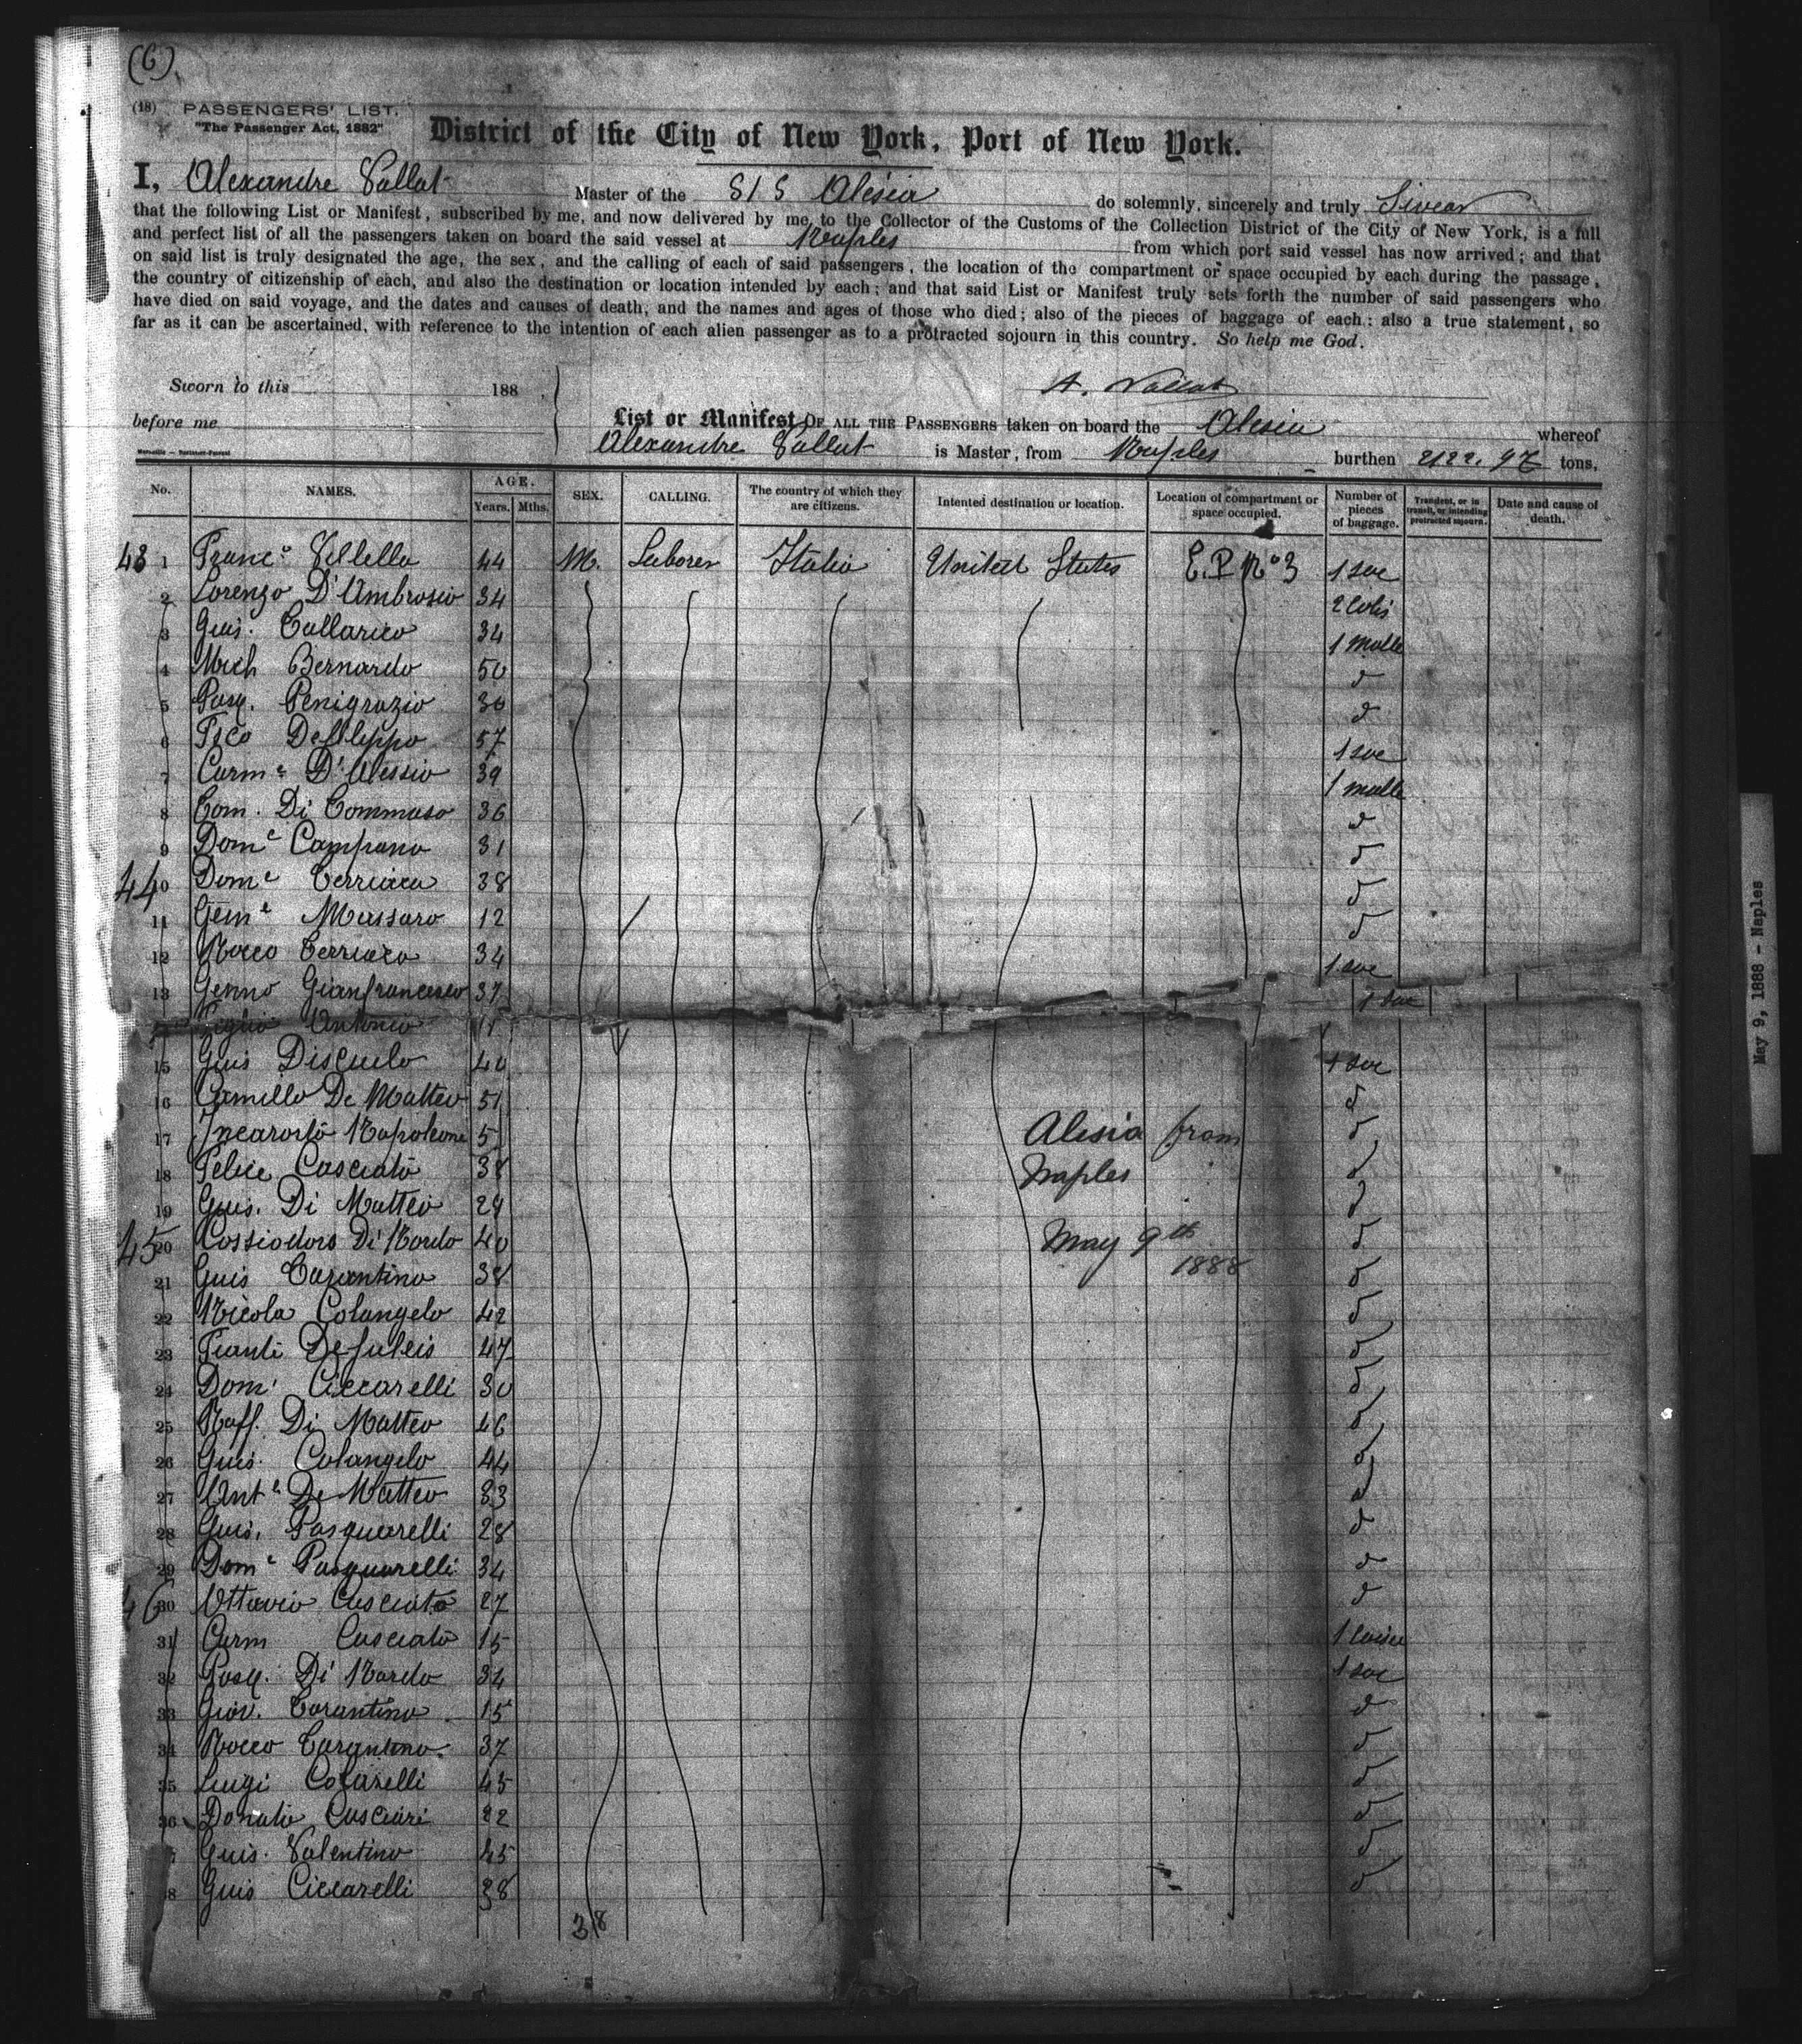 (6)
(18) PASSENGERS' LIST.
"The Passenger Act, 1882"
District of the City of New York, Port of New York.
I, Alexandre Vallat Master of the S/S Alesia do solemnly, sincerely and truly Swear
that the following List or Manifest, subscribed by me, and now delivered by me to the Collector of the Customs of the Collection District of the City of New York, is a full
and perfect list of all the passengers taken on board the said vessel at Naples from which port said vessel has now arrived; and that
on said list is truly designated the age, the sex, and the calling of each of said passengers, the location of the compartment or space occupied by each during the passage,
the country of citizenship of each, and also the destination or location intended by each; and that said List or Manifest truly sets forth the number of said passengers who
have died on said voyage, and the dates and causes of death, and the names and ages of those who died; also of the pieces of baggage of each; also a true statement, so
far as it can be ascertained, with reference to the intention of each alien passenger as to a protracted sojourn in this country. So help me God.
Sworn to this 188 ,
A. Vallat
before me
List or Manifest OF ALL THE PASSENGERS taken on board the Alesia whereof
Alexandre Vallat is Master, from Naples burthen 2122.97 tons.
No. NAMES. AGE. Years. Mths. SEX. CALLING. The country of which they are citizens. Intented destination or location. Location of compartment or space occupied. Number of pieces of baggage. Transient, or in transit, or intending protracted sojourn. Date and cause of death.
43 1 Franc° Vellella 44 M. Laborer Italia United States E.P. N° 3 1 sac
2 Lorenzo D'Ambrosio 34 2 Colis
3 Guis. Tallarico 34 1 malle
4 Mich Bernardo 50 d
5 Pasq. Penigrazio 30 d
6 Fsco Defilippo 57 1 sac
7 Carm° D'Alessio 39 1 malle
8 Tom. Di Tommaso 36 d
9 Dom° Campano 31 d
44 10 Dom° Cerriaca 38 d
11 Massaro 12 d
12 Rocco Cerriaco 34 1 sac
13 Genno Gianfrancesco 37 1 sac
Figlio Antonio 11
15 Guis 40 1 sac
16 Camillo De Matteo 51 d
17 Napoleone 5 d
18 Felice Casciato 38 d
19 Guis. Di Matteo 29 d
45 20 Cossiodoro Di Nardo 40 d
21 Guis Tarantino 38 d
22 Nicola Colangelo 42 d
23 47 d
24 Dom° Ciccarelli 30 d
25 Raff. Di Matteo 46 d
26 Guis. Colangelo 44 d
27 Ant° De Matteo 33 d
28 Guis. Pasquarelli 28 d
29 Dom° Pasquarelli 34 d
46 30 Ottavio Casciato 27 d
31 Carm Casciato 15 1 caisse
32 Pasq. Di Nardo 34 1 sac
33 Giov. Tarantino 15 d
34 Rocco Tarantino 37 d
35 Luigi Colarelli 45 d
36 Donato Casciari 22 d
Guis. Valentino 45 d
8 Guis Ciccarelli 38 d
38
Alesia from
Naples
May 9th
1888
May 9, 1888 - Naples